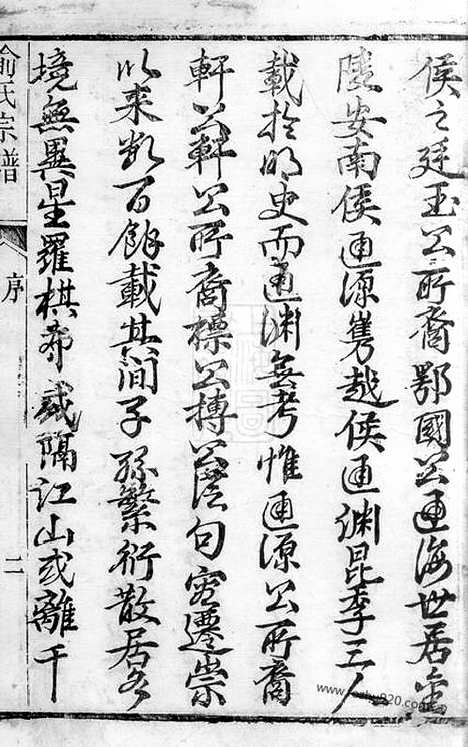 侯之廷玉公所裔鄂國公通海世居金
陵安南侯通源雋越侯通淵昆季三人
載於明史而通淵無考惟通源公所裔
軒公軒公所裔標公搏公 句容遷崇
以來數百餘載其間子孫繁衍散居各
境無異星羅棋布或隔江山或離千
俞氏宗譜
序
二